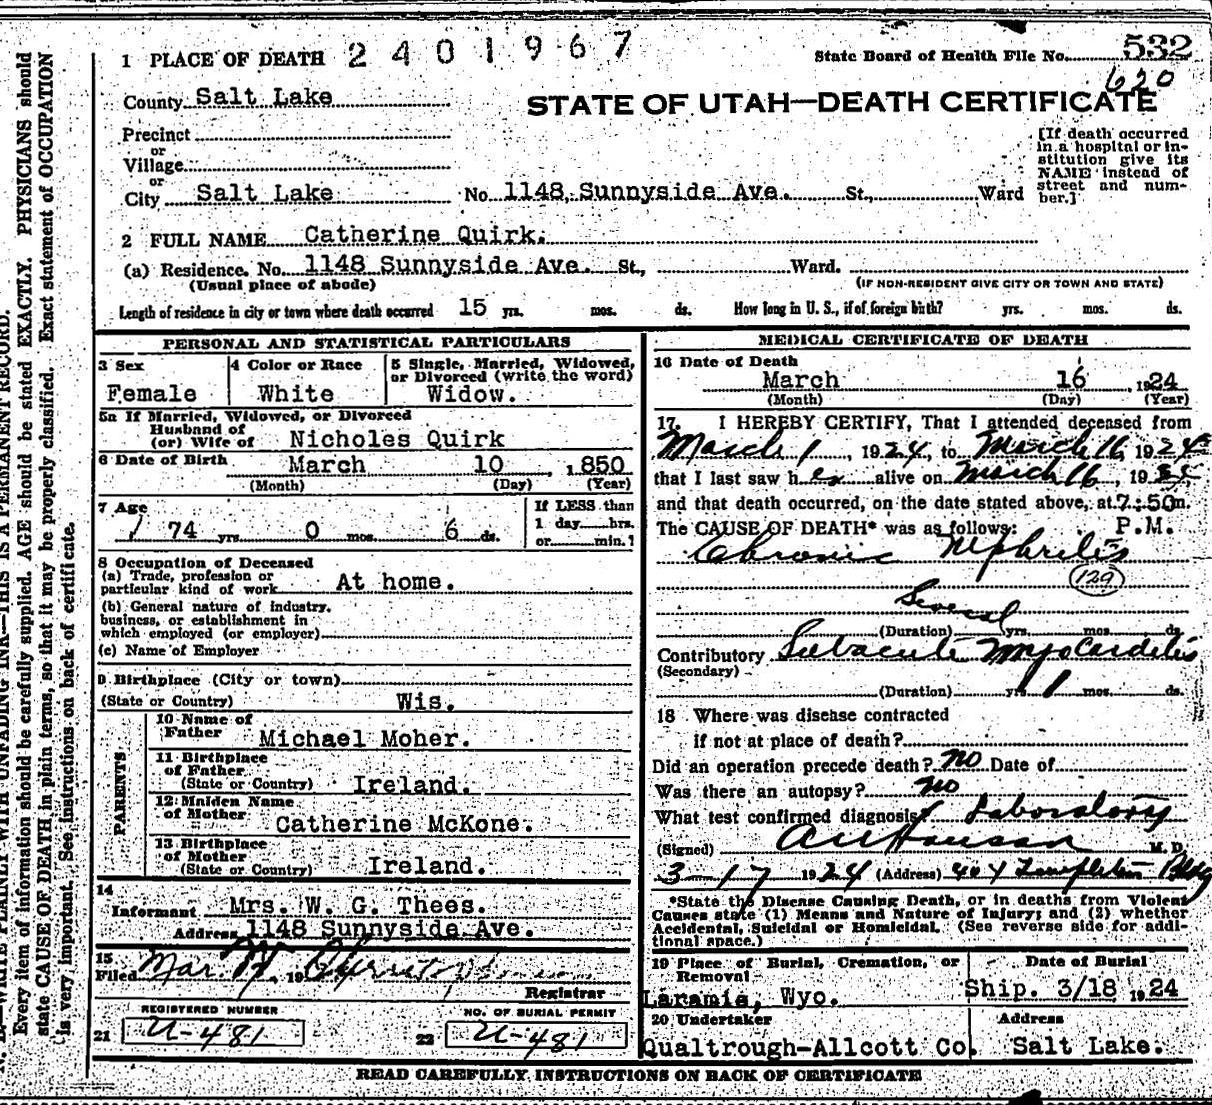 1 PLACE OF DEATH 2401967
State Board of Health File No. 532
620
County Salt Lake
STATE OF UTAH—DEATH CERTIFICATE
Precinct
or
Village
or
City Salt Lake No. 1148 Sunnyside Ave. St., Ward
[If death occurred
in a hospital or in-
stitution give its
NAME instead of
street and num-
ber.]
2 FULL NAME Catherine Quirk.
(a) Residence. No. 1148 Sunnyside Ave. St., Ward.
(Usual place of abode) (IF NON-RESIDENT GIVE CITY OR TOWN AND STATE)
Length of residence in city or town where death occurred 15 yrs. mos. ds. How long in U. S., if of foreign birth? yrs. mos. ds.
PERSONAL AND STATISTICAL PARTICULARS
3 Sex 4 Color or Race 5 Single, Married, Widowed,
or Divorced (write the word)
Female White Widow.
5a If Married, Widowed, or Divorced
Husband of
(or) Wife of Nicholes Quirk
6 Date of Birth March 10, 1850
(Month) (Day) (Year)
7 Age If LESS than
1 day hrs.
or min.?
74 yrs. 0 mos. 6 ds.
8 Occupation of Deceased
(a) Trade, profession or
particular kind of work At home.
(b) General nature of industry,
business, or establishment in
which employed (or employer)
(c) Name of Employer
9 Birthplace (City or town)
(State or Country) Wis.
PARENTS
10 Name of
Father Michael Moher.
11 Birthplace
of Father
(State or Country) Ireland.
12 Maiden Name
of Mother Catherine McKone.
13 Birthplace
of Mother
(State or Country) Ireland.
14
Informant Mrs. W. G. Thees.
Address 1148 Sunnyside Ave.
15
Filed Mar. 19
Registrar
REGISTERED NUMBER
21 U-481
NO. OF BURIAL PERMIT
22 U-481
MEDICAL CERTIFICATE OF DEATH
16 Date of Death
March 16 1924
(Month) (Day) (Year)
17. I HEREBY CERTIFY, That I attended deceased from
March 1, 1924, to March 16, 1924
that I last saw her alive on March 16, 19
and that death occurred, on the date stated above, at 7:50m.
The CAUSE OF DEATH* was as follows: P.M.
Chronic Nephritis
(129)
Several
(Duration) yrs. mos. ds.
Contributory Subacute Myocarditis
(Secondary)
(Duration) yrs. 1 mos. ds.
18 Where was disease contracted
if not at place of death?
Did an operation precede death? No Date of
Was there an autopsy? No
What test confirmed diagnosis? Laboratory
(Signed) M. D.
3-17 1924 (Address) 404 Templeton Bldg
*State the Disease Causing Death, or in deaths from Violent
Causes state (1) Means and Nature of Injury; and (2) whether
Accidental, Suicidal or Homicidal. (See reverse side for addi-
tional space.)
19 Place of Burial, Cremation, or
Removal
Laramie, Wyo.
Date of Burial
Ship. 3/18 1924
20 Undertaker Address
Qualtrough-Allcott Co. Salt Lake.
READ CAREFULLY INSTRUCTIONS ON BACK OF CERTIFICATE
WRITE PLAINLY WITH UNFADING INK—THIS IS A PERMANENT RECORD.
Every item of information should be carefully supplied. AGE should be stated EXACTLY. PHYSICIANS should
state CAUSE OF DEATH in plain terms, so that it may be properly classified. Exact statement of OCCUPATION
is very important. See instructions on back of certificate.